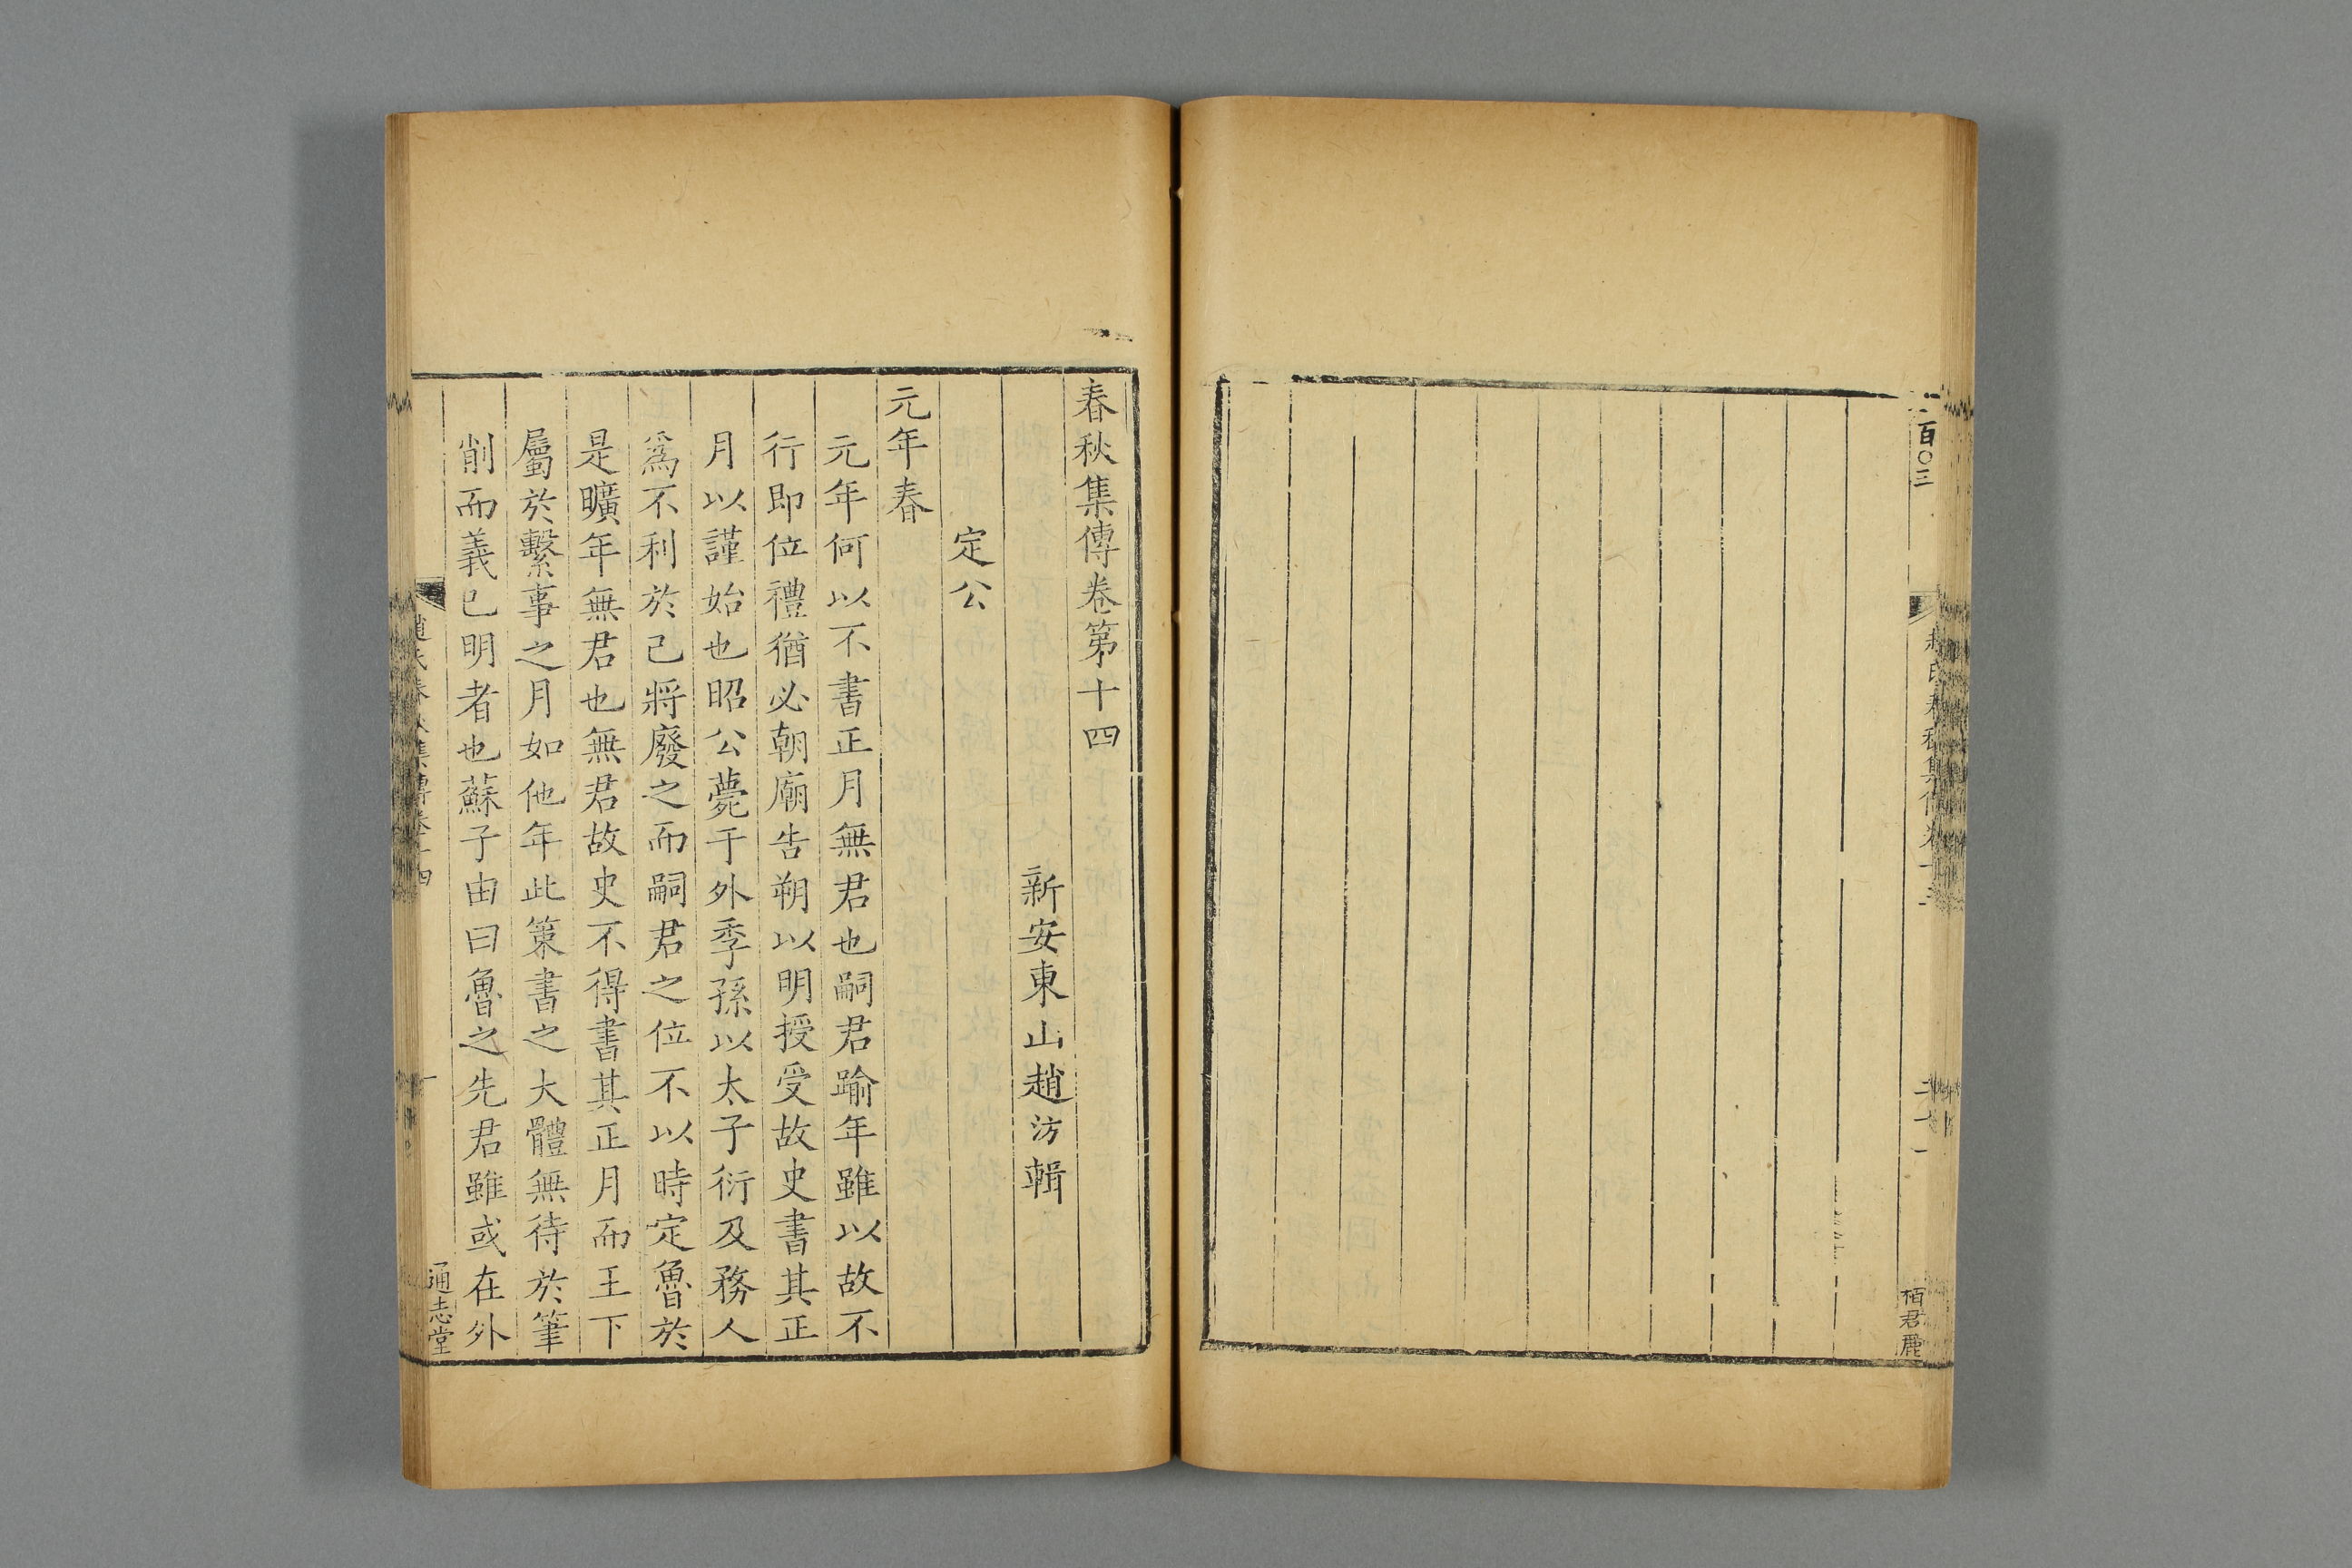 百〇三
春秋集傳卷第十四
新安東山趙汸輯
定公
元年春
元年何以不書正月無君也嗣君踰年雖以故不
行即位禮猶必朝廟告朔以明授受故史書其正
月以謹始也昭公薨于外季孫以太子衍及務人
爲不利於己將廢之而嗣君之位不以時定魯於
是曠年無君也無君故史不得書其正月而王下
屬於繫事之月如他年此策書之大體無待於筆
削而義已明者也蘇子由曰魯之先君雖或在外
通志堂